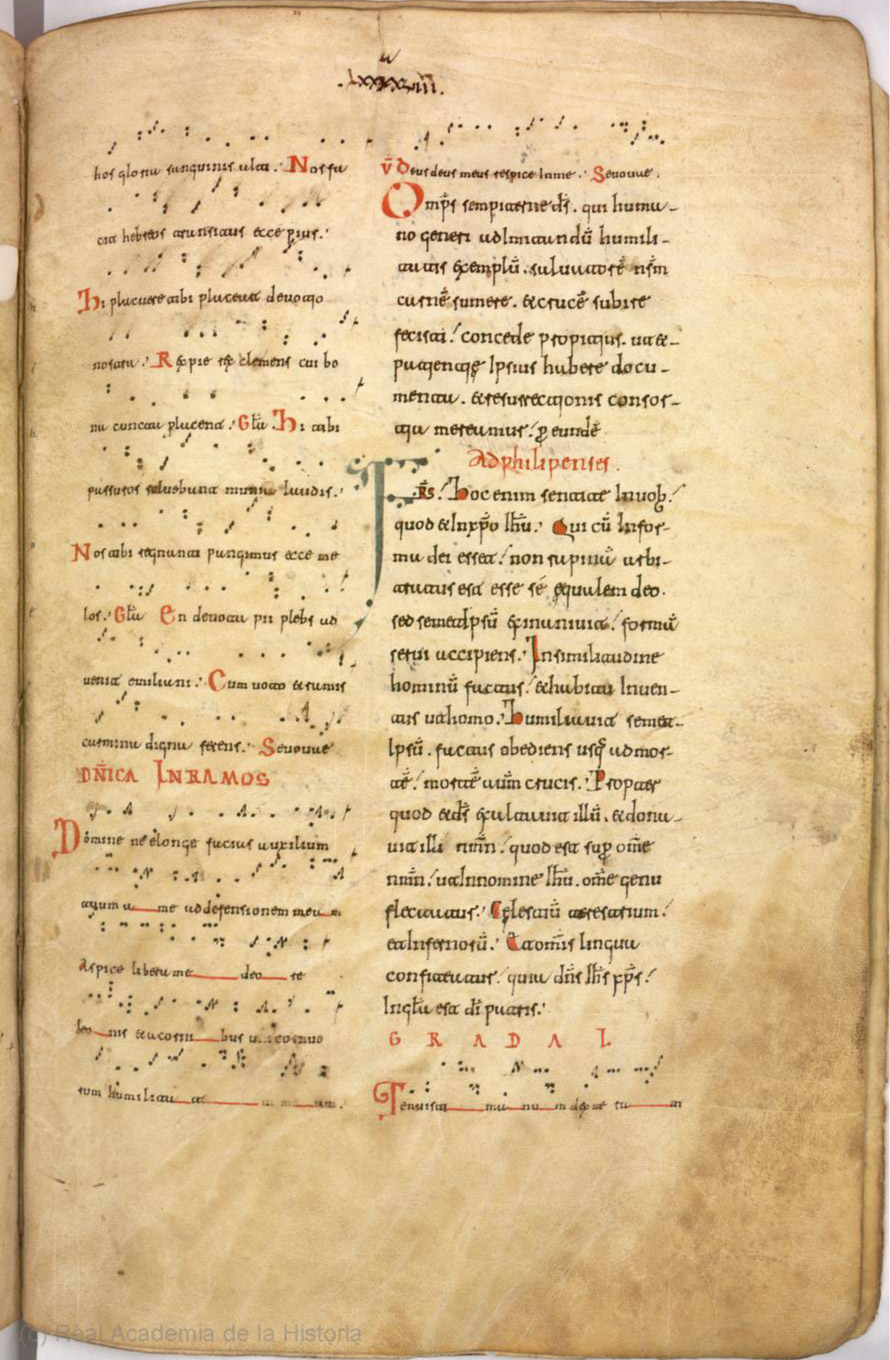 .lxxxxiiii.
hos gloria sanguinis alti. Nos fu
cia hebreos assumsisti ecce pius.
Hi placuere tibi placeat devotio
nostra. Rex pie rex clemens cui bo
na cuncta placent. Gla Hi tibi
passuros solvebunt munia laudis.
Nos tibi regnanti pangimus ecce me
los. Gla En devota pii plebs ad
venit emiliani. Cum voto et sumis
carmina digna ferens. Sevovue
DÑICA IN RAMOS
Domine ne elonge facias auxilium
tuum a me ad defensionem meam
Aspice libera me deo re
leo nis et a corni bus
rum humilita te
v̄ Deus deus meus respice in me. Sevovue.
Omp̄s sempiterne d̄s. qui huma-
no generi ad imitandū humili-
tatis exemplū. salvatorē nr̄m
carnē sumere. et crucē subire
fecisti! concede propitius. ut et
patientie ipsius habere docu-
menta. et resurrectionis consor-
tia mereamur! p eundē
Ad philipenses.
FR̄S! Hoc enim sentite in vob.!
quod et in xp̄o ihū. Qui cū in for-
ma dei esset! non rapinā arbi-
tratus est esse sē equalem deo.
sed semetipsū exinanivit! formā
servi accipiens. In similitudine
hominū factus! et habitu inven-
tus ut homo. Humiliavit semet-
ipsū. factus obediens usq̄ ad mor-
tē! mortē autm̄ crucis. Propter
quod et d̄s exaltavit illū. et dona-
vit illi nm̄n! quod est sup om̄e
nm̄n! ut in nomine ihū. om̄e genu
flectatur. Celestiū terestrium!
et infernorū. Et om̄is lingua
confiteatur! quia dn̄s ihs xp̄s!
In gl̄a est dī patris.
GRADAL
Tenuisti manum dexte ra m
(c) Real Academia de la Historia